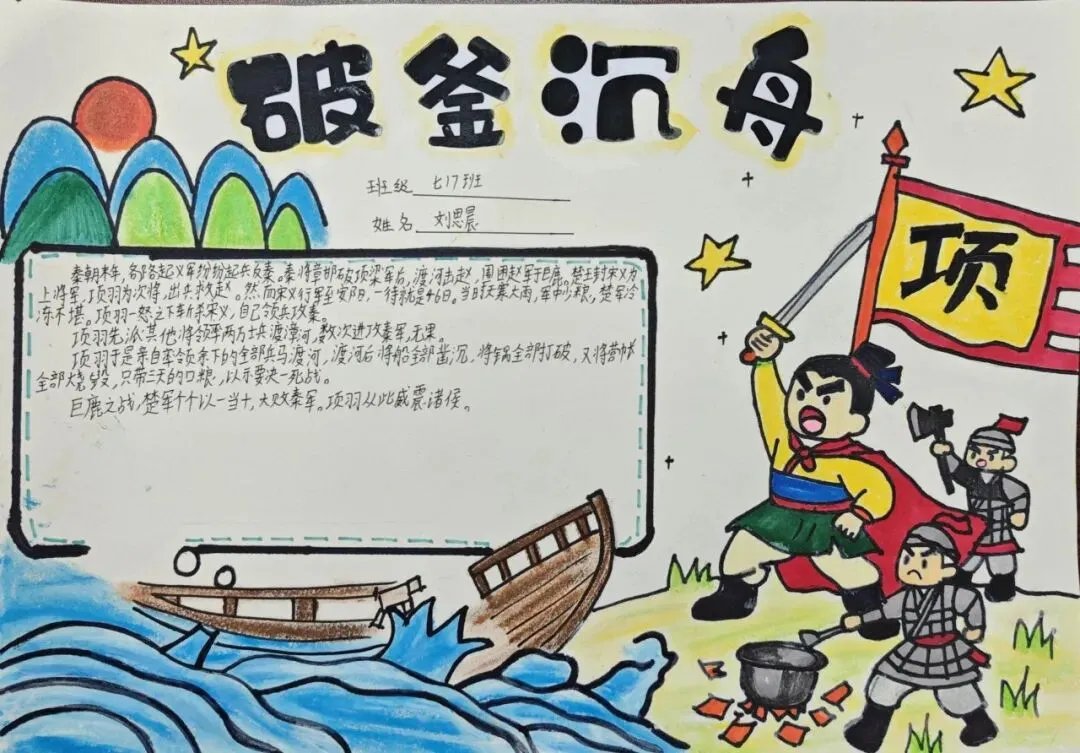 破釜沉舟
班级 七17班
姓名 刘思晨
项
秦朝末年，各路起义军纷纷起兵反秦。秦将章邯破项梁军后，渡河击赵，周围赵军于巨鹿。楚王封宋义为
上将军，项羽为次将，出兵救赵。然而宋义行军至安阳，一待就是46日。当日天寒大雨，军中少粮，楚军冷
冻不堪。项羽一怒之下斩杀宋义，自己领兵攻秦。
项羽先派其他将领率两万士兵渡漳河，数次进攻秦军，无果。
项羽于是亲自率领余下的全部兵马渡河，渡河后将船全部凿沉，将锅全部打破，又将营帐
全部烧毁，只带三天的口粮，以示要决一死战。
巨鹿之战，楚军个个以一当十，大败秦军。项羽从此威震诸侯。